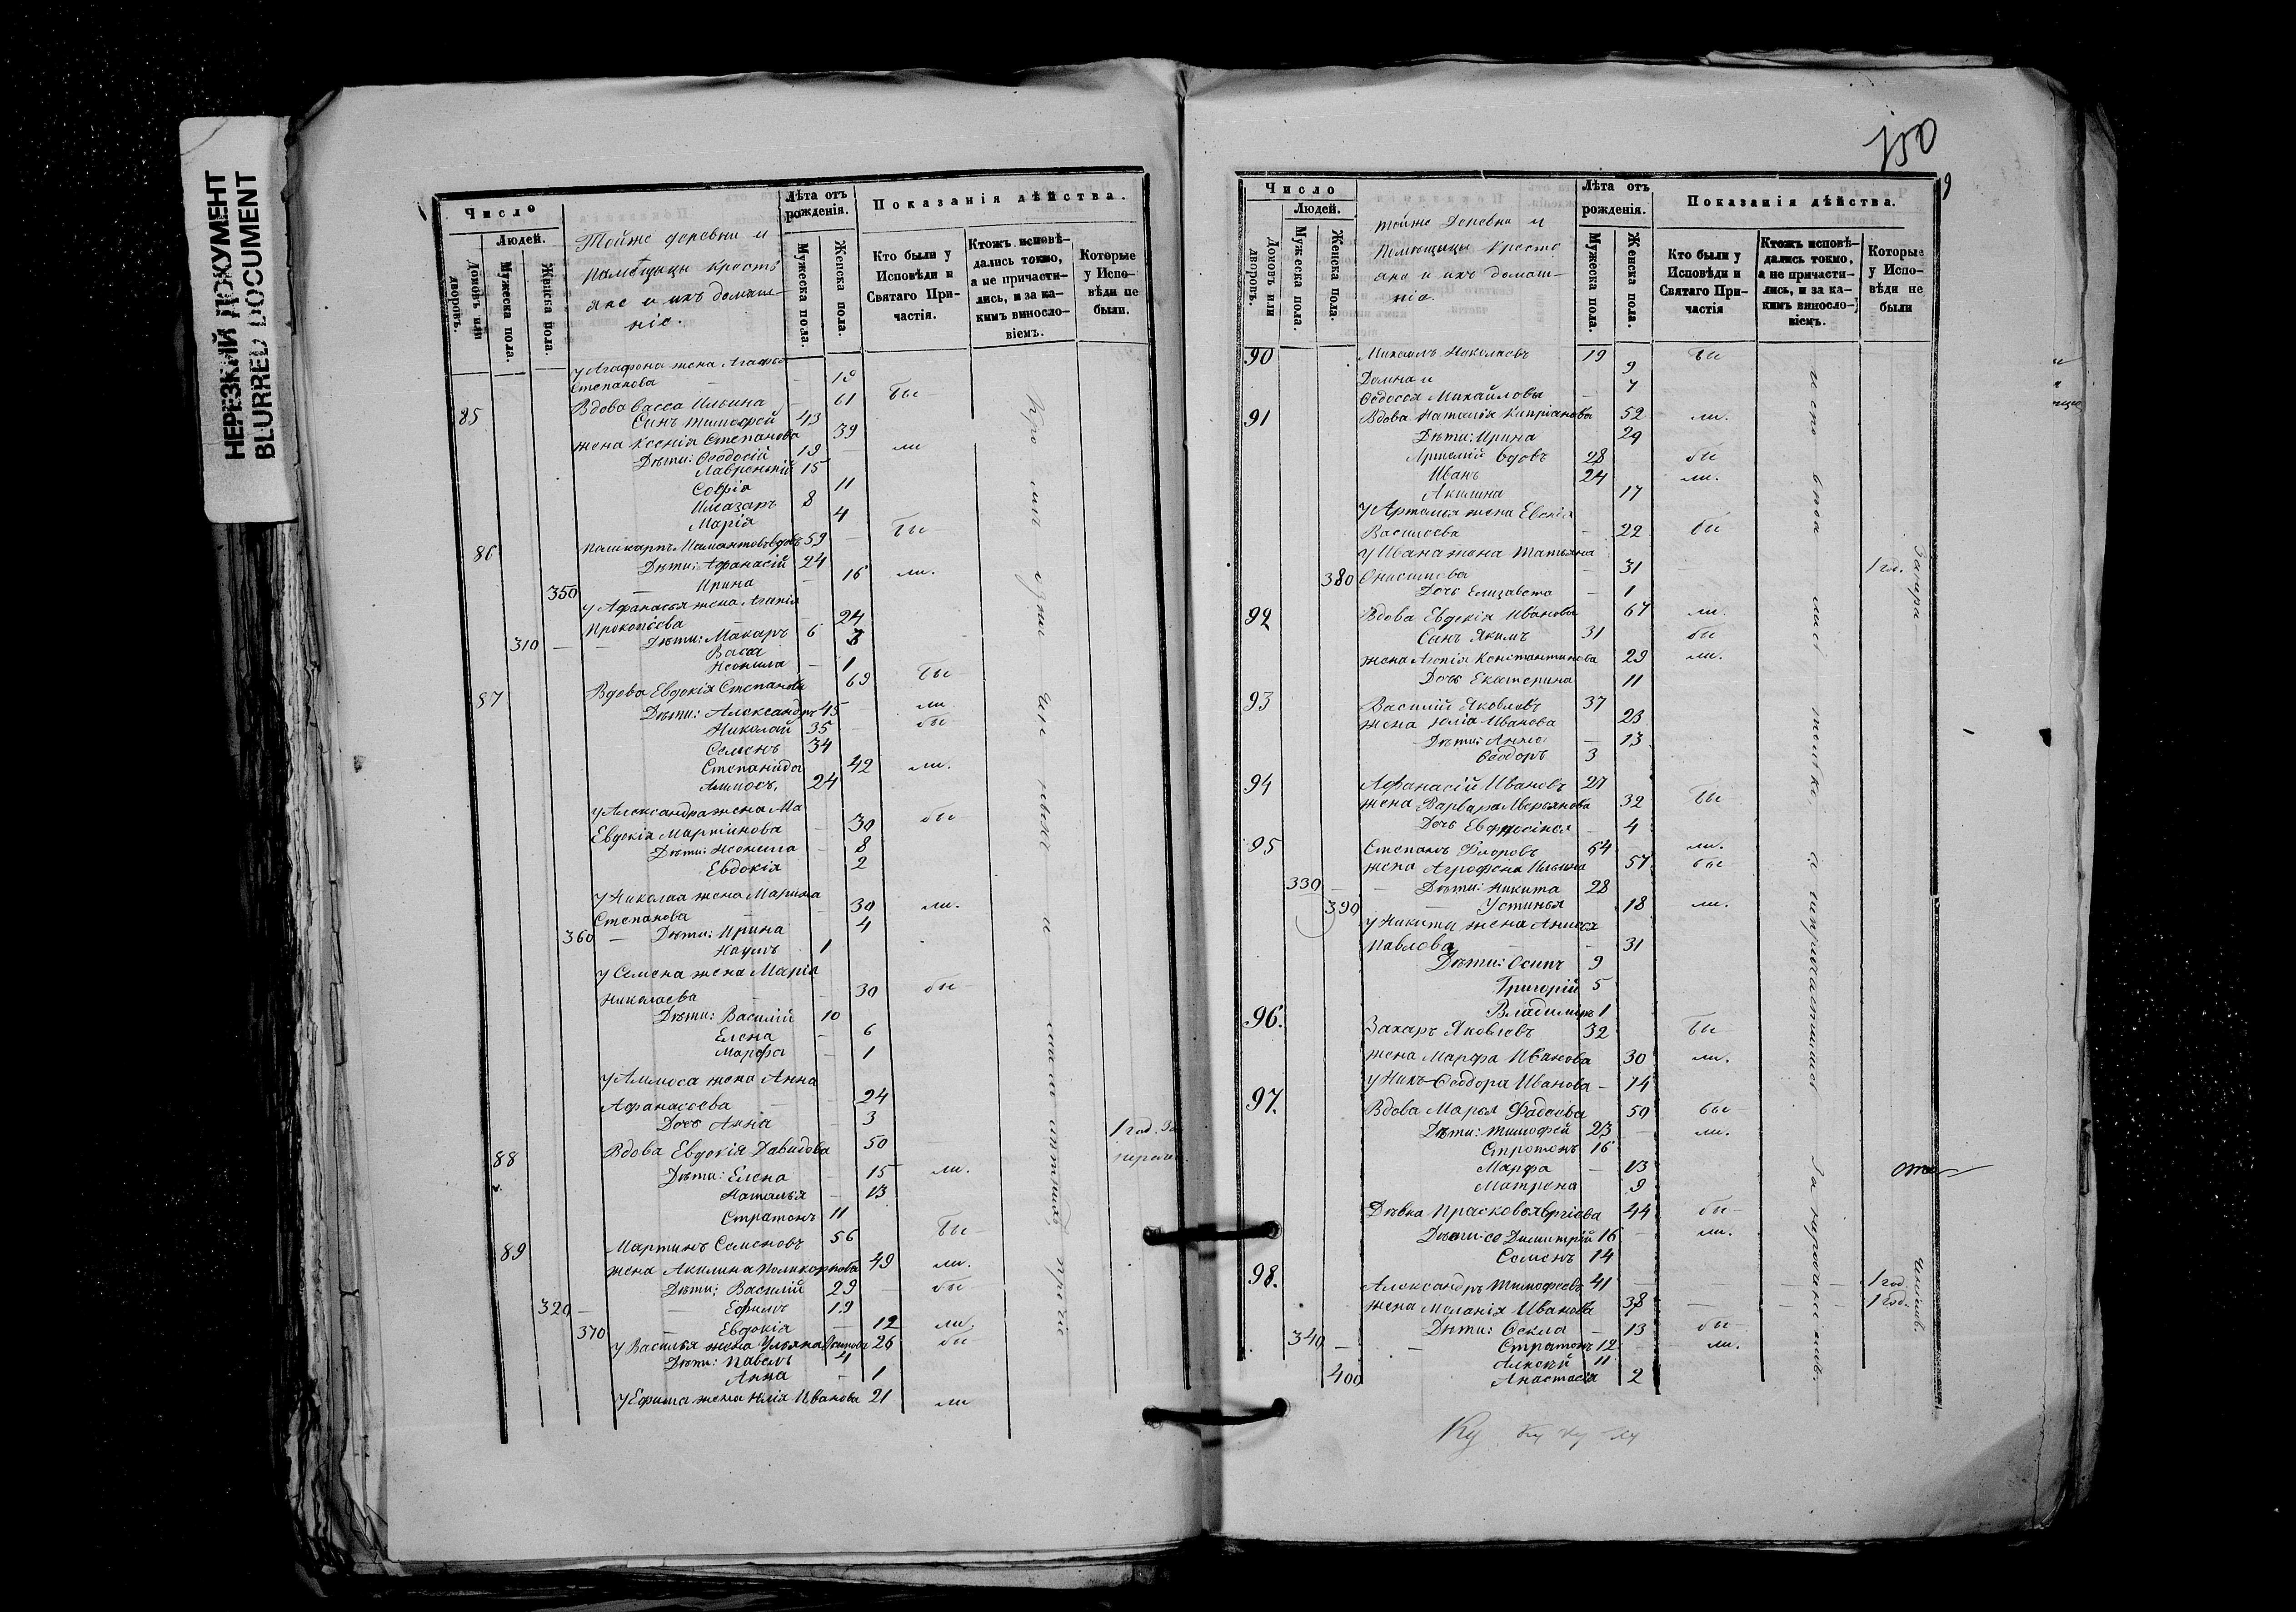 НЕРЕЗКИЙ ДОКУМЕНТ
BLURRED DOCUMENT
Число
Людей.
Домовъ или дворовъ.
Мужеска пола.
Женска пола.
Тойже деревни и
помѣщицы кресть
яне и ихъ домаш-
ніе.
Лѣта отъ рожденія.
Мужеска пола.
Женска пола.
Показанія дѣйства.
Кто были у Исповѣди и Святаго Причастія.
Ктожъ исповѣдались токмо, а не причастились, и за какимъ винословіемъ.
Которые у Исповѣди не были.
у Агафона жена Агафья
Степанова — 18
85 Вдова Васса Ильина — 61 бы
Сынъ Тимофей 43
жена Ксенія Степанова 39
Дѣти: Ѳеодосій 19 — ли
Лаврентій 15
Софія 11
Илазаръ 8
Марія 4
86 Поликарпъ Мамантовъ вдовъ 59 — бы
Дѣти: Афанасій 24
350 — Ирина — 16 ли.
у Афанасья жена Агапія
Прокопіева — 24
310 — Дѣти: Макаръ 6
Васса 3
Неонила — 1
87 Вдова Евдокія Степанова 69 бы
Дѣти: Александръ 45 — ли
Николай 35 — бы
Семенъ 34
Степанида 42 ли.
Аммосъ, 24
у Александра жена Ма
Евдокія Мартинова — 30 бы
Дѣти: Неонила — 8
Евдокія 2
у Николая жена Марина
Степанова — 30 ли.
360 — Дѣти: Ирина 4
Наумъ 1
у Семена жена Марія
Николаева — 30 бы
Дѣти: Василій 10
Елена — 6
Марфа — 1
у Аммоса жена Анна
Афанасьева — 24
Дочь Анна — 3
88 Вдова Евдокія Давидова 50 — 1 год.
Дѣти: Елена — 15 ли.
Наталья — 13
Стратонъ 11
89 Мартинъ Семеновъ 56 бы
жена Акилина Поликарпова 49 ли.
Дѣти: Василій 29 — бы
320 — Ефимъ 19
370 — Евдокія — 12 ли
у Василья жена Ульяна Осипова 26 бы
Дѣти: Павелъ 4
Анна — 1
у Ефима жена Юлія Иванова 21 ли
150
9
Число
Людей.
Домовъ или дворовъ.
Мужеска пола.
Женска пола.
тойже Деревни и
Помѣщицы Кресть
яне и ихъ домаш-
ніе.
Лѣта отъ рожденія.
Мужеска пола.
Женска пола.
Показанія дѣйства.
Кто были у Исповѣди и Святаго Причастія
Ктожъ исповѣдались токмо, а не причастились, и за какимъ винословіемъ.
Которые у Исповѣди не были
90 Михаилъ Николаевъ 19 бы
Домна и 9
Ѳедосья Михайловы — 7
91 Вдова Наталія Кипріанова 52 ли.
Дѣти: Ирина 29
Артемій вдовъ 28 — бы
Иванъ 24 ли.
Акилина 17
у Артемья жена Евгенія
Василева — 22 бы
у Ивана жена Татьяна
380 Онисимова — 31 1 год.
Дочь Елизавета — 1
92 Вдова Евдокія Иванова 67 ли.
Сынъ Якимъ 31 бы
жена Агапія Константинова 29 ли.
Дочь Екатерина 11
93 Василій Яковлевъ 37
жена Юлія Иванова 23
Дѣти: Анна — 13
Ѳеодоръ 3
94 Афанасій Ивановъ 27
жена Варвара Аверьянова 32 бы
Дочь Евфросінья — 4
95 Степанъ Флоровъ 64 — ли.
жена Агрофена Ильина 57 бы
330 — Дѣти: Никита 28
390 — Устинья 18 ли.
у Никиты жена Анисья
Павлова — 31
Дѣти: Осипъ 9
Григорій 5
Владиміръ 1
96. Захаръ Яковлевъ 32 бы
жена Марфа Иванова 30 ли.
у Нихъ Ѳеодора Иванова — 14
97. Вдова Марья Фадеева 50 бы
Дѣти: Тимофей 23 — ли.
Стратонъ 16
Марфа — 13
Матрена 9
Дѣвка Прасковья 44 бы
Дѣти: ея Димитрій 16 — ли.
Семенъ 14
98. Александръ Тимофеевъ 41 — 1 год
жена Меланія Иванова 38 — 1 год.
Дѣти: Ѳекла — 13 бы
340 — Стратонъ 12 — ли.
Алексѣй 11
400 Анастасія 2